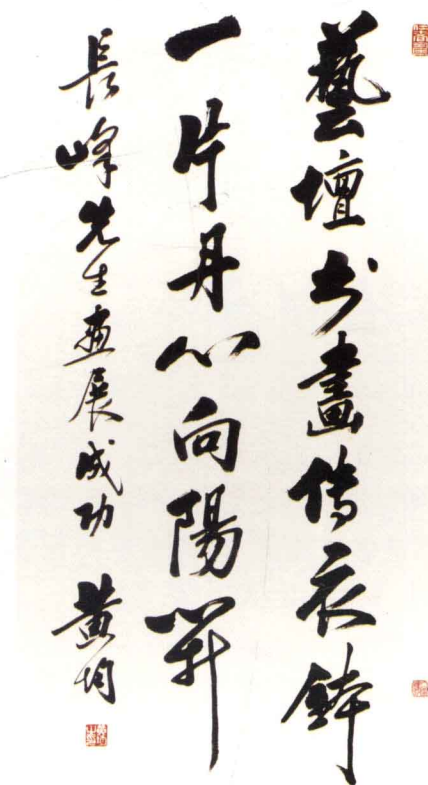 藝壇书畫传衣鉢
一片丹心向陽開
長峰先生畫展成功
黄均